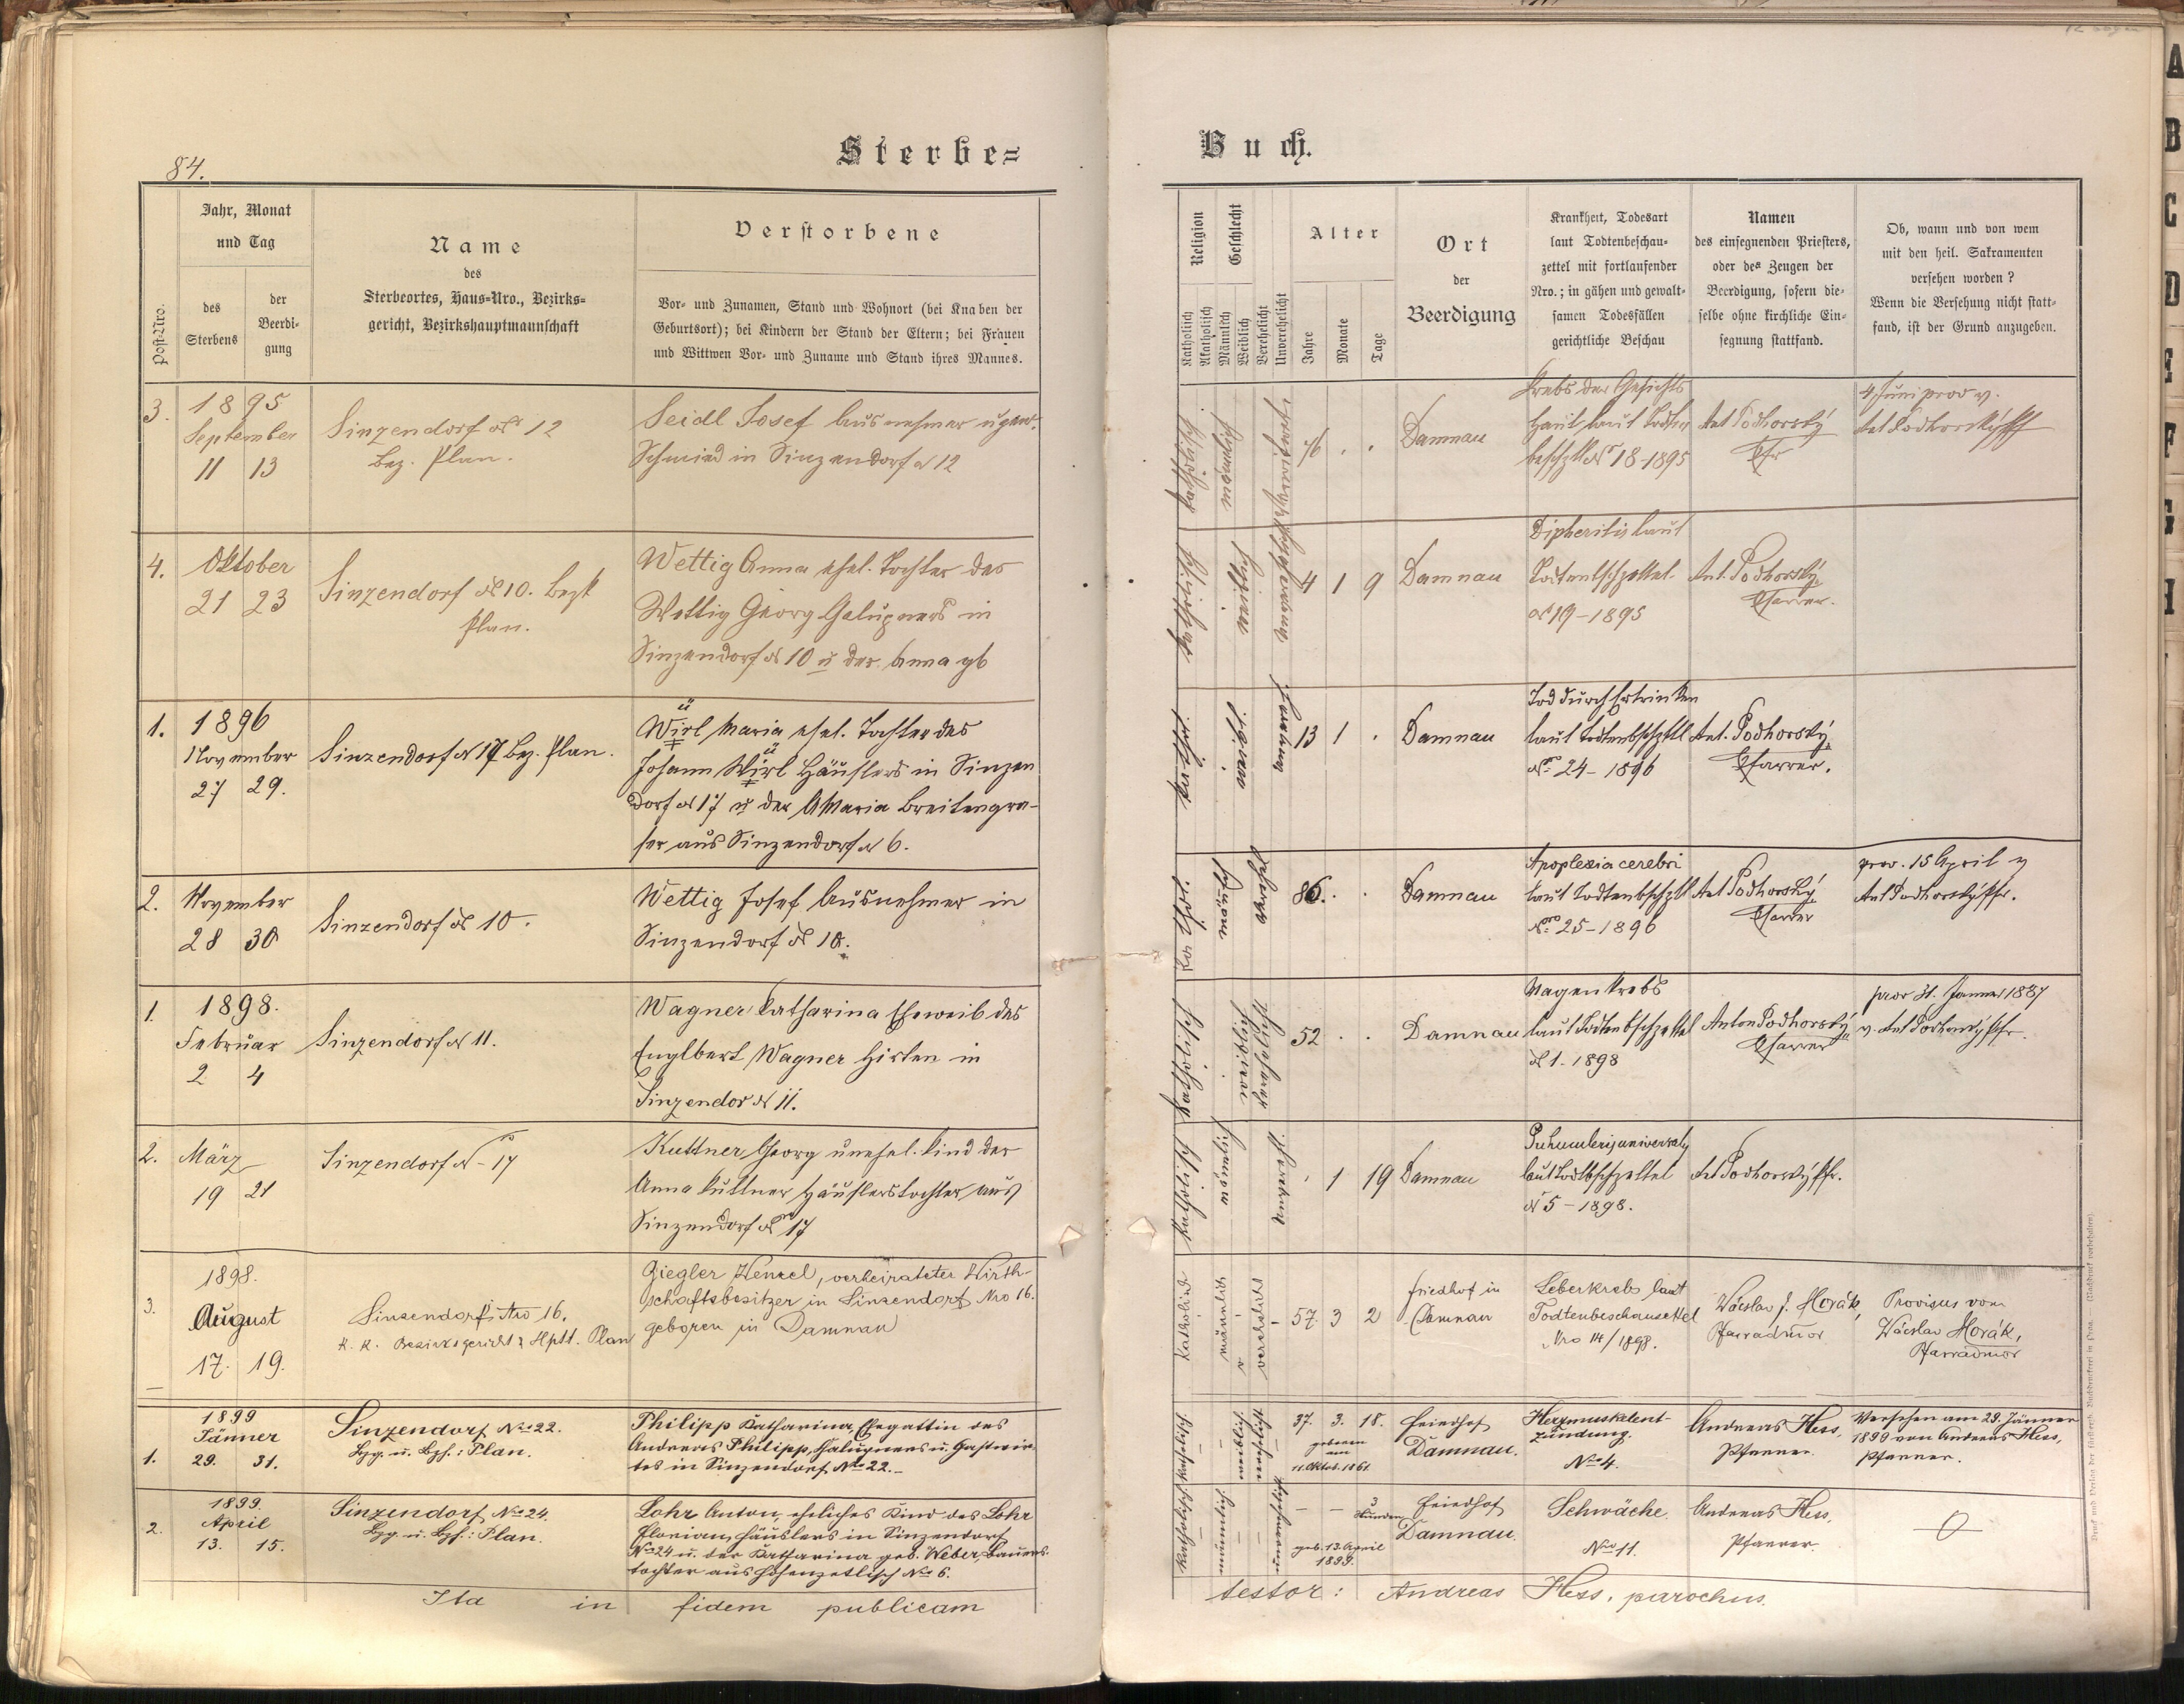 84.
Sterbe=
Buch.
Jahr, Monat
und Tag
Post=Nro.
des
Sterbens
der
Beerdi=
gung
Name
des
Sterbeortes, Haus=Nro., Bezirks=
gericht, Bezirkshauptmannschaft
Verstorbene
Vor= und Zunamen, Stand und Wohnort (bei Knaben der
Geburtsort); bei Kindern der Stand der Eltern; bei Frauen
und Wittwen Vor= und Zuname und Stand ihres Mannes.
Religion
Katholisch
Akatholisch
Geschlecht
Männlich
Weiblich
Verehelicht
Unverehelicht
Alter
Jahre
Monate
Tage
Ort
der
Beerdigung
Krankheit, Todesart
laut Todtenbeschau=
zettel mit fortlaufender
Nro.; in gähen und gewalt=
samen Todesfällen
gerichtliche Beschau
Namen
des einsegnenden Priesters,
oder des Zeugen der
Beerdigung, sofern die=
selbe ohne kirchliche Ein=
segnung stattfand.
Ob, wann und von wem
mit den heil. Sakramenten
versehen worden?
Wenn die Versehung nicht statt=
fand, ist der Grund anzugeben.
3.
1895
September
11 13
Sinzendorf N 12
Bez. Plan.
Seidl Josef Ausnehmer u gew.
Schmied in Sinzendorf N 12
katholisch
männlich
76 . .
Damnau
Krebs der Gesichts
haut laut Todten
beschztl N 18-1895
Ant Podhorský
Pfr
4 Juni prov v.
Ant Podhorský Pfr
4.
Oktober
21 23
Sinzendorf N 10. Bezk
Plan.
Wettig Anna ehel. Tochter des
Wettig Georg Chalupners in
Sinzendorf N 10 u der Anna gb
katholisch
weiblich
4 1 9
Damnau
Dipheritis laut
Todtenbschzettel.
N 19-1895
Ant. Podhorský
Pfarrer.
1.
1896
November
27 29.
Sinzendorf N 17 Bez. Plan.
ü
Wirl Maria ehel. Tochter des
ü
Johann Wirl Häuslers in Sinzen
dorf N 17 u der Maria Breitengra-
ser aus Sinzendorf N 6.
13 1 .
Damnau
Tod durch Ertrinken
laut Todtenbschztl
Nro 24-1896
Ant. Podhorský
Pfarrer.
2.
November
28 30
Sinzendorf N 10.
Wettig Josef Ausnehmer in
Sinzendorf N 10.
86. .
Damnau
Apoplexia cerebri
laut Todtenbschztl
Nro 25-1896
Ant Podhorský
Pfarrer
prov. 15 April v
Ant Podhorský Pfr.
1.
1898.
Februar
2 4
Sinzendorf N 11.
Wagner Katharina Eheweib des
Englbert Wagner Hirten in
Sinzendor N 11.
katholisch
weiblich
verehelicht
52 . .
Damnau
Magenkrebs
laut Todtenbschzettel
N 1. 1898
Anton Podhorský
Pfarrer
prov 31. Jänner 1897
v. Ant Podhorský Pfr.
2.
März
19 21
Sinzendorf N 17
Kuttner Georg unehel. Kind der
Anna Kuttner Häuslerstochter aus
Sinzendorf N 17
katholisch
männlich
. 1 19
Damnau
laut Todtbschzettel
N 5-1898.
Ant Podhorský Pfr.
3.
1898.
August
17. 19.
Sinzendorf, Nro 16.
k. k. Bezirksgericht & Hptt. Plan
Giegler Wenzel, verheirateter Wirth-
schaftsbesitzer in Sinzendorf Nro 16.
geboren in Damnau
katholisch
männlich
verehelicht
57. 3 2
Friedhof in
Damnau
Leberkrebs laut
Todtenbeschauzettel
Nro 14/1898.
Wácslav J. Horák,
Pfarradmor
Provisus vom
Wácslav Horák,
Pfarradmor
1.
1899
Jänner
29. 31.
Sinzendorf No 22.
Bzg. u. Bzh.: Plan.
Philipp Katharina, Ehegattin des
Andreas Philipp, Chalupners u. Gastwir-
tes in Sinzendorf No 22.-
katholisch.
weiblich.
verehelicht
37. 3. 18.
geboren
am
11. Oktob. 1861.
Friedhof
Damnau.
Herzmuskelent-
zündung.
No 4.
Andreas Hess,
Pfarrer.
Versehen am 29. Jänner
1899 von Andreas Hess,
Pfarrer.
2.
1899.
April
13. 15.
Sinzendorf No 24.
Bzg. u. Bzh.: Plan.
Lohr Anton, eheliches Kind des Lohr
Florian, Häuslers in Sinzendorf
No 24 u. der Katharina geb. Weber, Bauers-
tochter aus Hohenzetlisch No 6.
katholisch
männlich.
unverehelicht
- - 3
Stunden
geb. 13. April
1899.
Friedhof
Damnau.
Schwäche.
No 11.
Andreas Hess,
Pfarrer.
Ita in fidem publicam
testor: Andreas Hess, parochus.